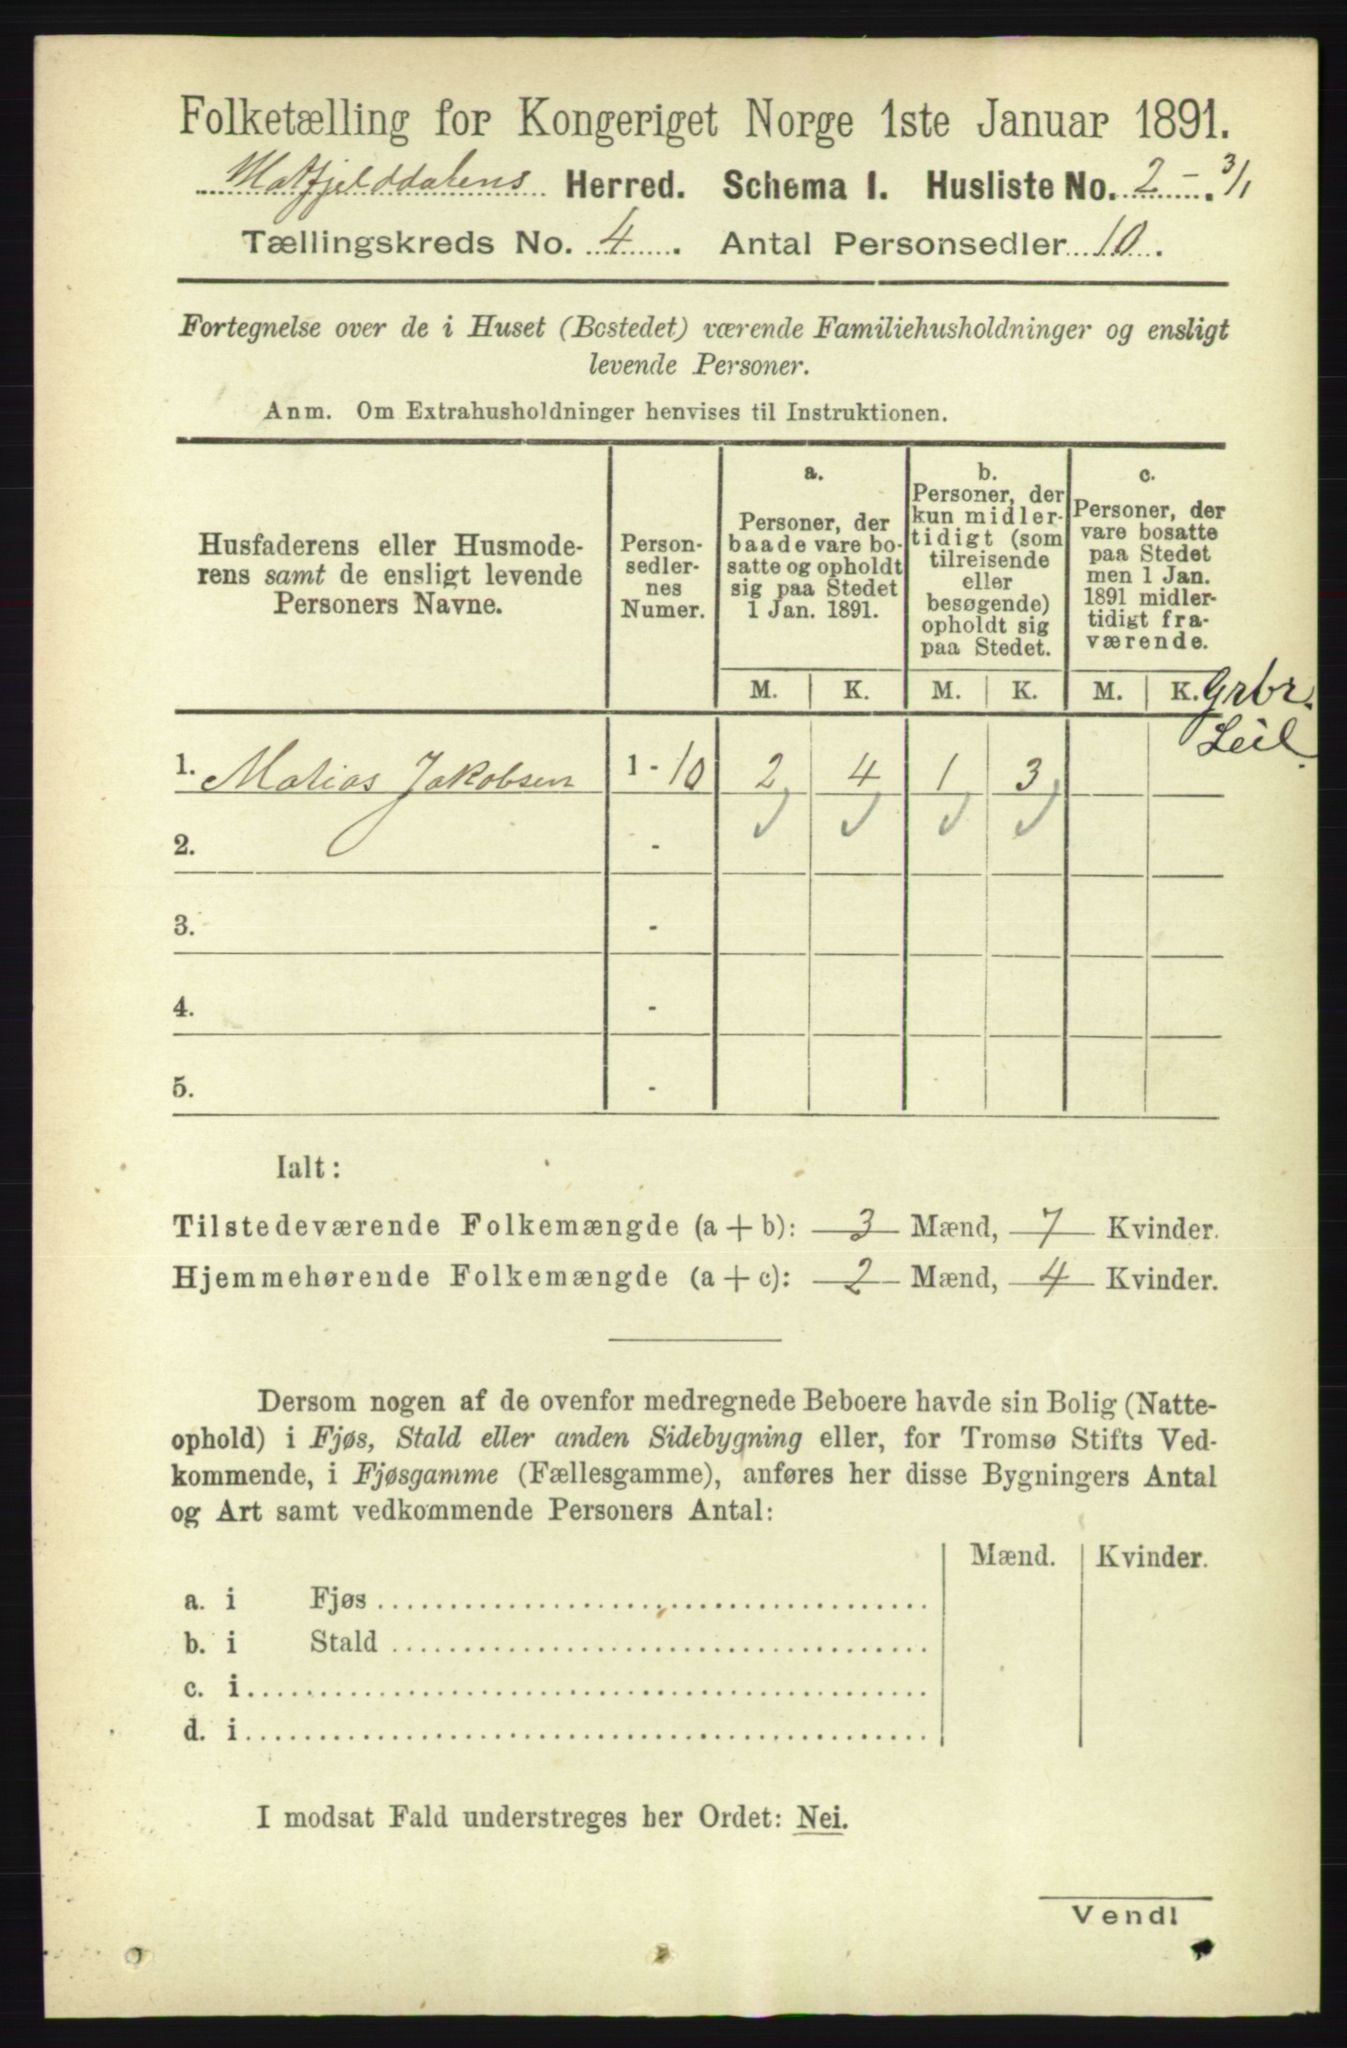 Folketælling for Kongeriget Norge 1ste Januar 1891.
Hatfjelddalens Herred. Schema 1. Husliste No. 2 - 3/1
Tællingskreds No. 4. Antal Personsedler 10.
Fortegnelse over de i Huset (Bostedet) værende Familiehusholdninger og ensligt
levende Personer.
Anm. Om Extrahusholdninger henvises til Instruktionen.
Husfaderens eller Husmode-
rens samt de ensligt levende
Personers Navne.
Person-
sedler-
nes
Numer.
a.
Personer, der
baade vare bo-
satte og opholdt
sig paa Stedet
1 Jan. 1891.
b.
Personer, der
kun midler-
tidigt (som
tilreisende
eller
besøgende)
opholdt sig
paa Stedet.
c.
Personer, der
vare bosatte
paa Stedet
men 1 Jan.
1891 midler-
tidigt fra-
værende.
M. K. M. K. M. K. Grbr.
Leil.
1. Matias Jakobsen 1 - 10 2 4 1 3
2. -
3. -
4. -
5. -
Ialt:
Tilstedeværende Folkemængde (a + b): 3 Mænd, 7 Kvinder.
Hjemmehørende Folkemængde (a + c): 2 Mænd, 4 Kvinder.
Dersom nogen af de ovenfor medregnede Beboere havde sin Bolig (Natte-
ophold) i Fjøs, Stald eller anden Sidebygning eller, for Tromsø Stifts Ved-
kommende, i Fjøsgamme (Fællesgamme), anføres her disse Bygningers Antal
og Art samt vedkommende Personers Antal:
Mænd. Kvinder.
a. i Fjøs
b. i Stald
c. i
d. i
I modsat Fald understreges her Ordet: Nei.
Vendl